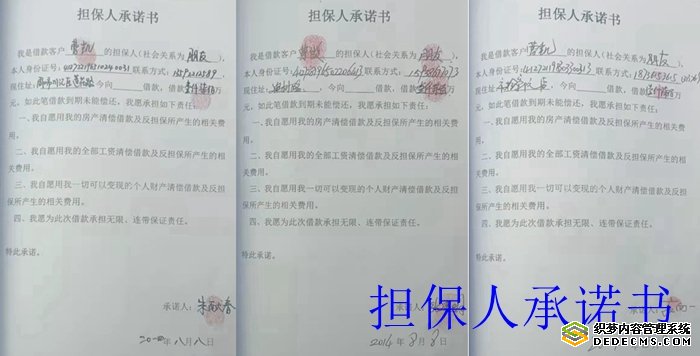 担保人承诺书
我是借款客户 的担保人(社会关系为朋友),
本人身份证号: 联系方式:
现住址: 今向 借款,借款 万
元,如此笔借款到期未能偿还,我愿承担如下责任:
一、我自愿用我的房产清偿借款及反担保所产生的相关费
用。
二、我自愿用我的全部工资清偿借款及反担保所产生的相
关费用。
三、我自愿用我一切可以变现的个人财产清偿借款及反担
保所产生的相关费用。
四、我愿为此次借款承担无限、连带保证责任。
特此承诺。
承诺人:朱献春
年八月八日
担保人承诺书
我是借款客户 的担保人(社会关系为朋友),
本人身份证号: 联系方式:
现住址: 今向 借款,借款 万
元,如此笔借款到期未能偿还,我愿承担如下责任:
一、我自愿用我的房产清偿借款及反担保所产生的相关费
用。
二、我自愿用我的全部工资清偿借款及反担保所产生的相
关费用。
三、我自愿用我一切可以变现的个人财产清偿借款及反担
保所产生的相关费用。
四、我愿为此次借款承担无限、连带保证责任。
特此承诺。
2014年8月8日
担保人承诺书
我是借款客户 的担保人(社会关系为朋友),
本人身份证号: 联系方式:
现住址: 今向 借款,借款 万
元,如此笔借款到期未能偿还,我愿承担如下责任:
一、我自愿用我的房产清偿借款及反担保所产生的相关费
用。
二、我自愿用我的全部工资清偿借款及反担保所产生的相
关费用。
三、我自愿用我一切可以变现的个人财产清偿借款及反担
保所产生的相关费用。
四、我愿为此次借款承担无限、连带保证责任。
特此承诺。
担保人承诺书
织梦内容管理系统
DEDECMS.COM